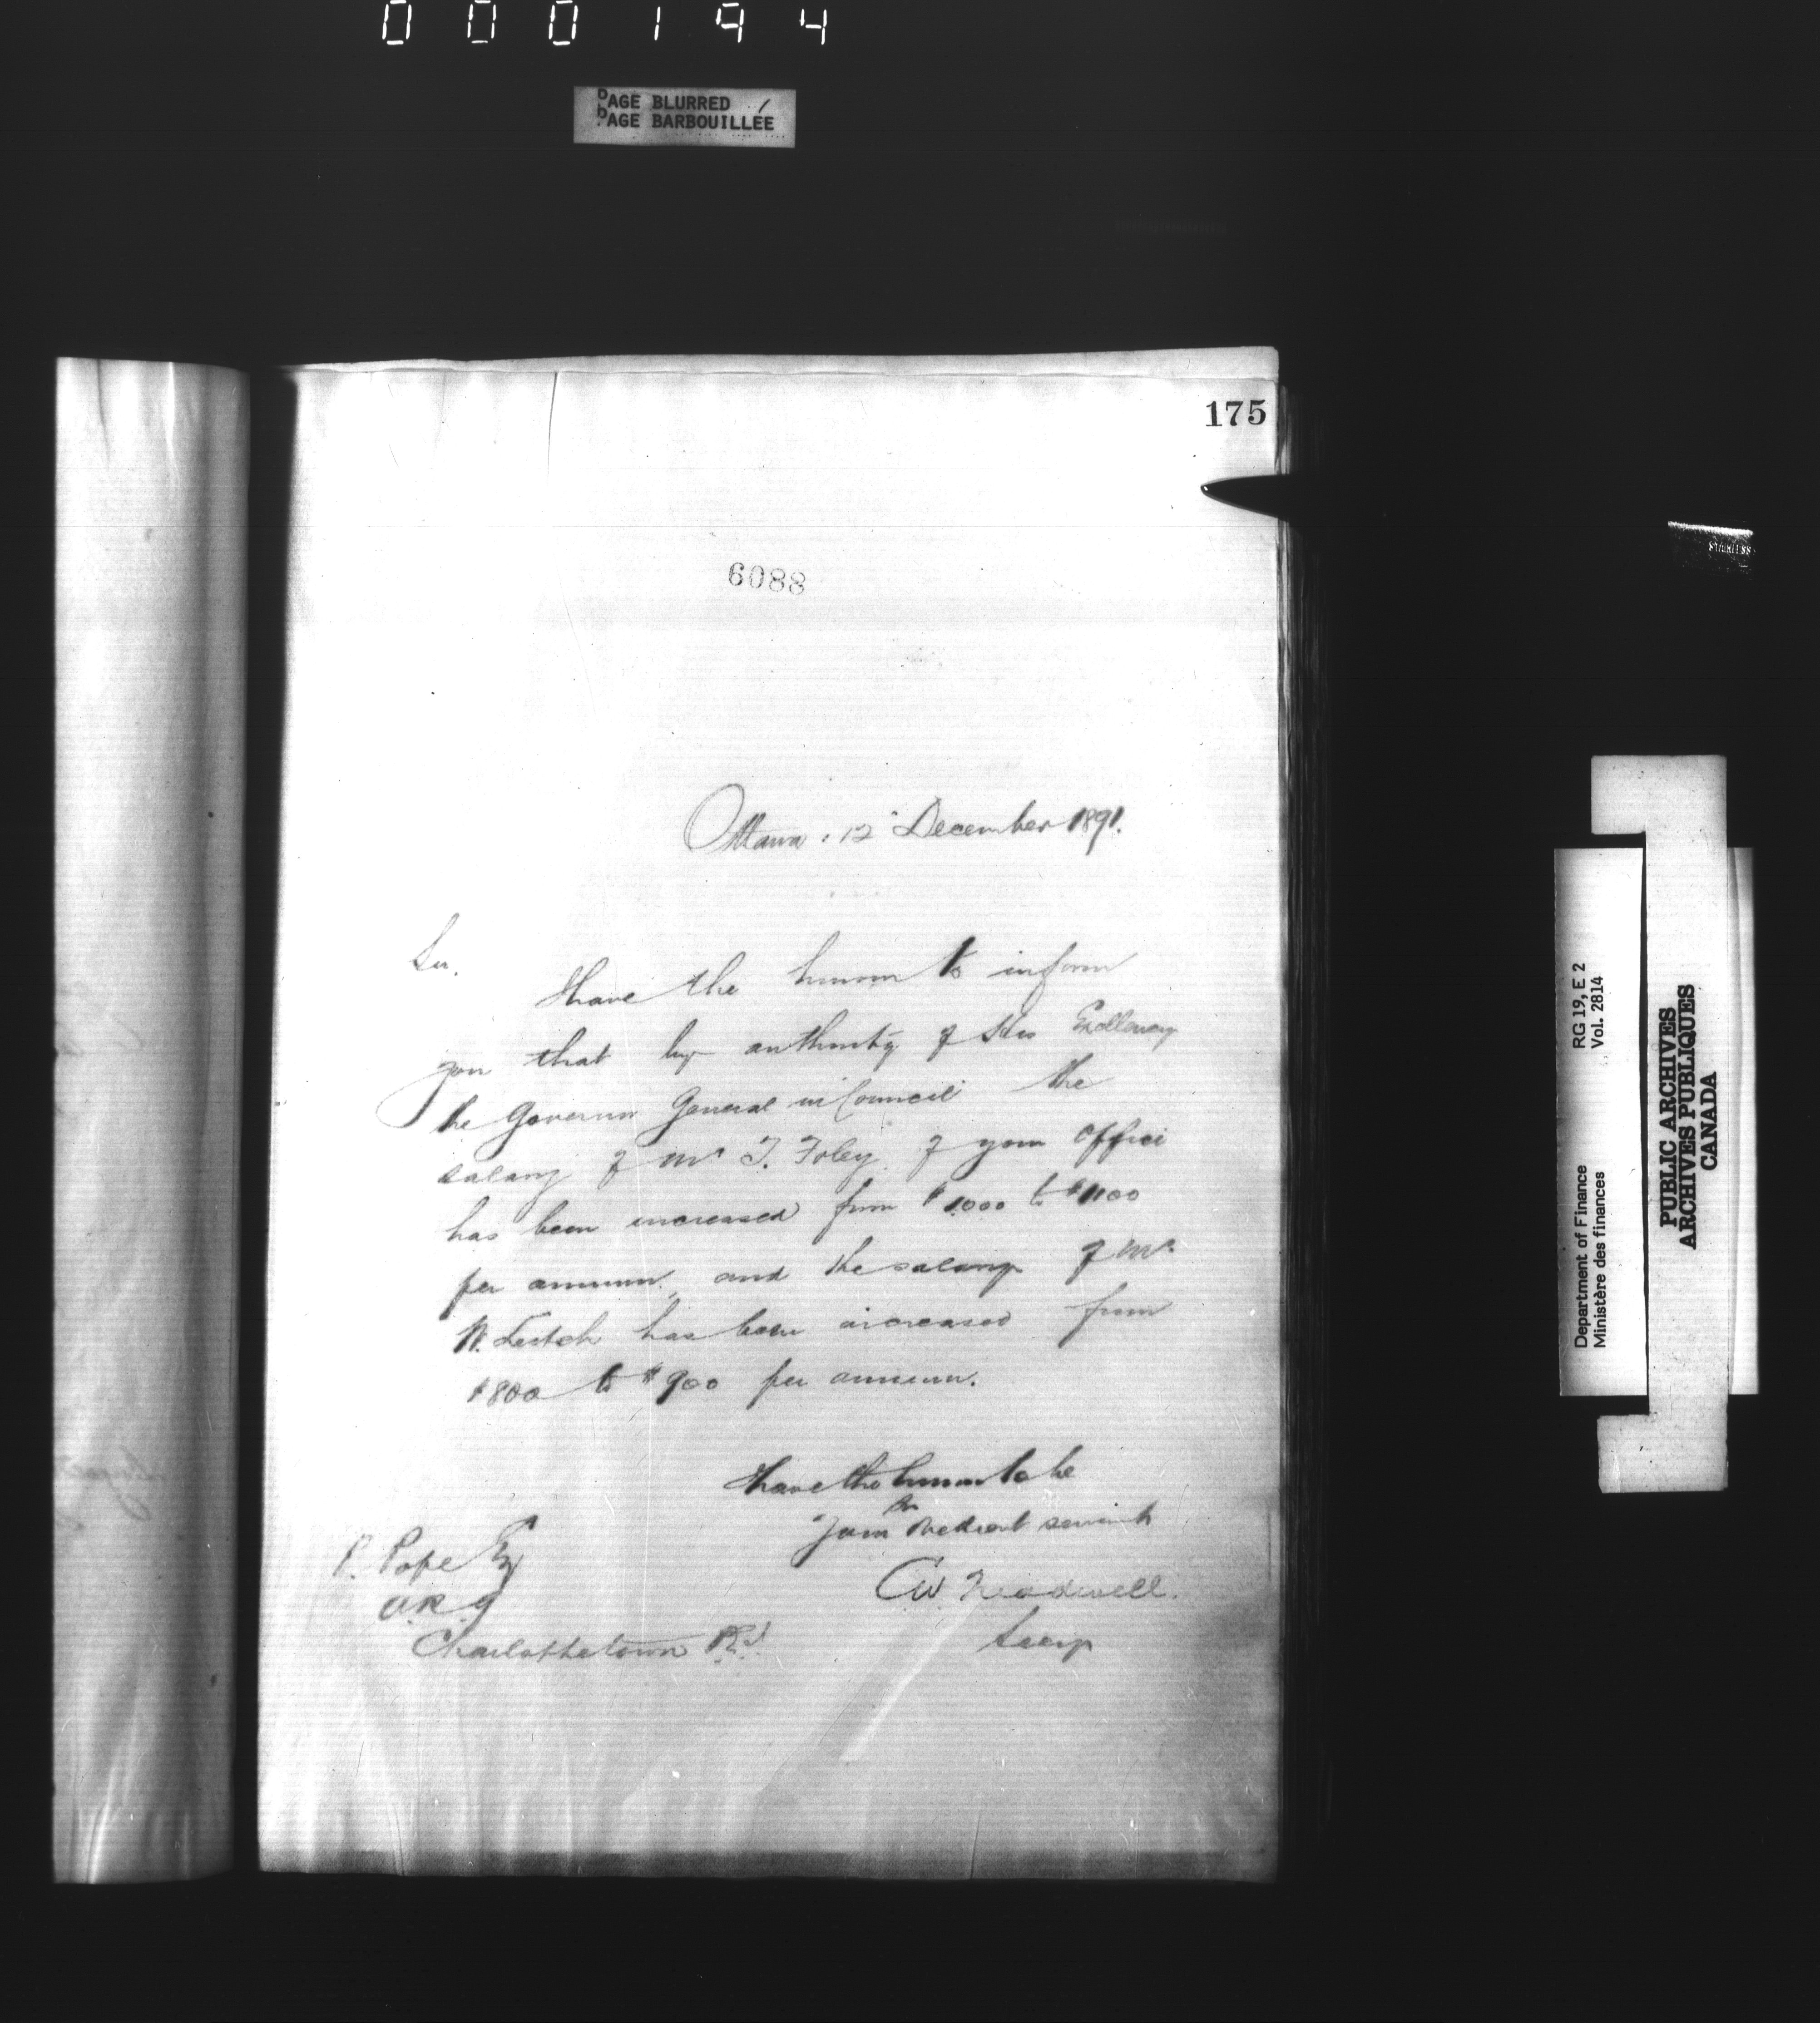 000194
PAGE BLURRED
PAGE BARBOUILLÉE
175
6088
Ottawa: 12" December 1891.
Sir,
I have the honor to inform
you that by authority of His Excellency
the Governor General in Council the
salary of Mr T. Foley of your office
has been increased from $1000 to $1100
per annum, and the salary of Mr
N. Leitch has been increased from
$800 to $900 per annum.
I have the honor to be
Sir
Your obedient servant
C W Treadwell.
Secy
P. Pope Esq
A.R.G
Charlottetown P.E.I.
Department of Finance RG 19, E 2
Ministère des finances Vol. 2814
PUBLIC ARCHIVES
ARCHIVES PUBLIQUES
CANADA